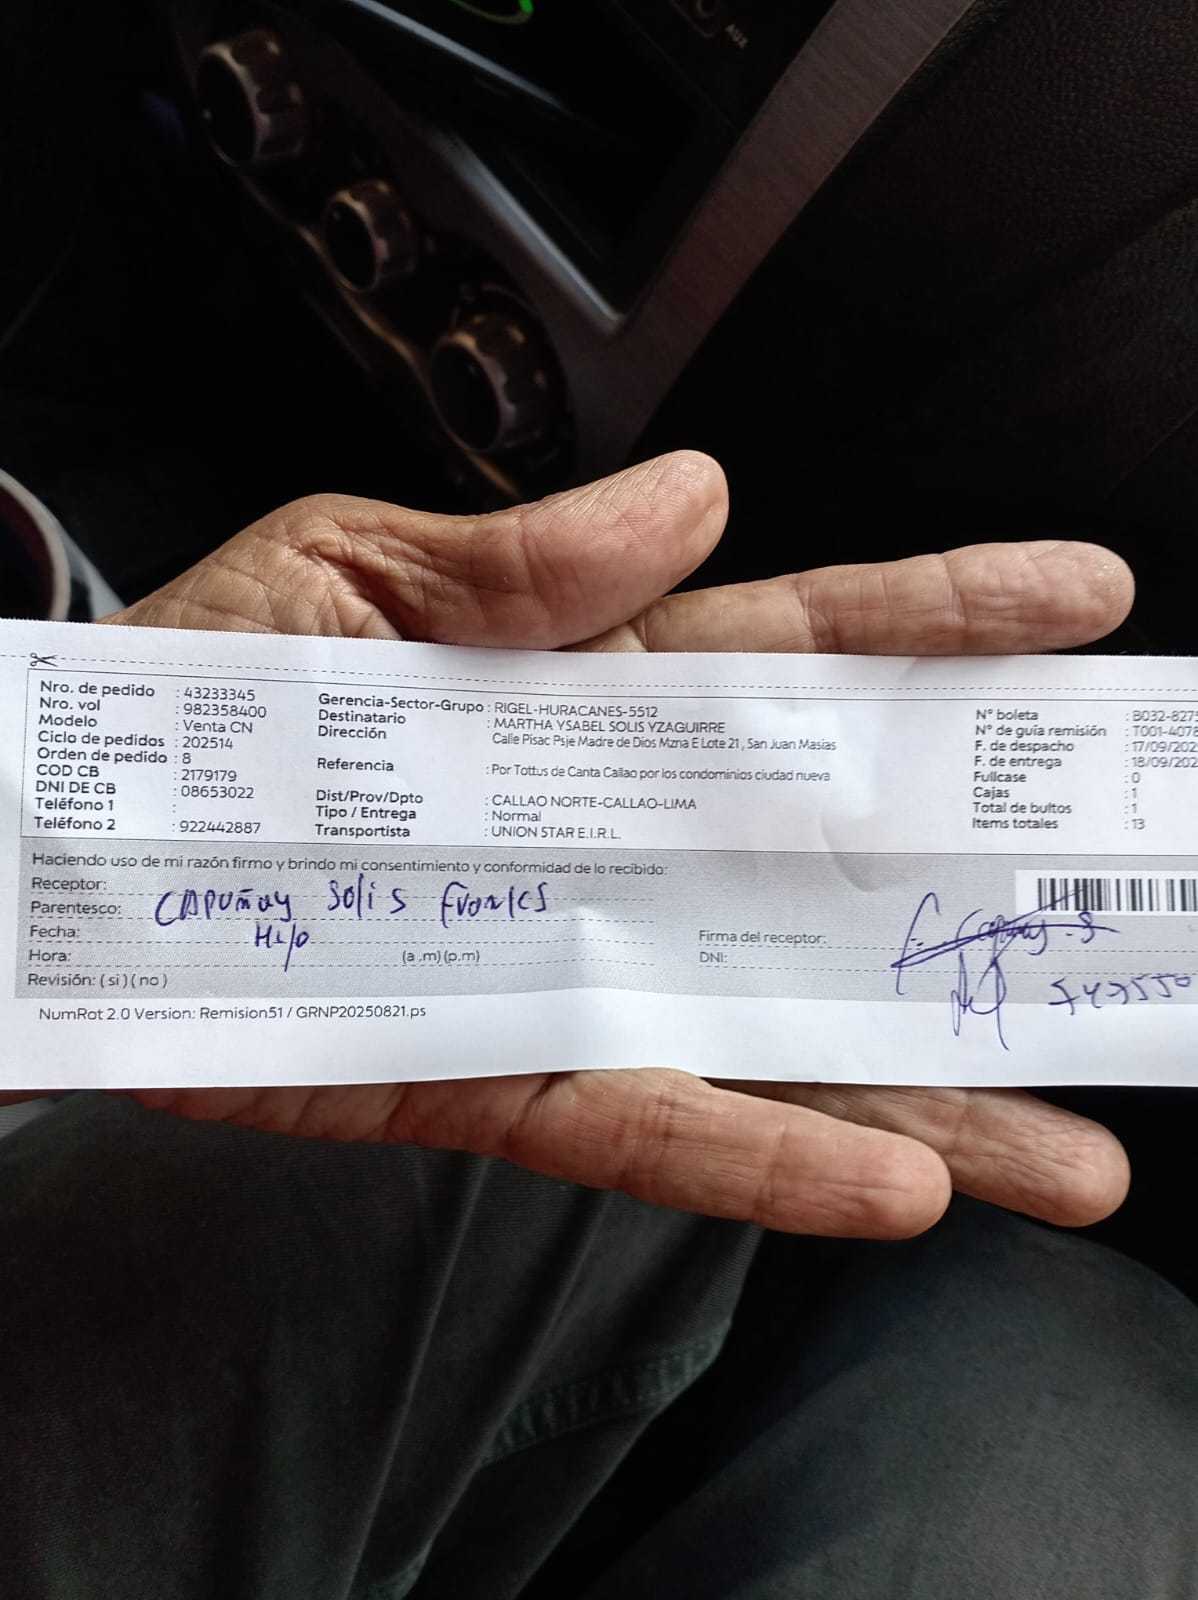 AUX
Nro. de pedido : 43233345
Nro. vol : 982358400
Modelo : Venta CN
Ciclo de pedidos : 202514
Orden de pedido : 8
COD CB : 2179179
DNI DE CB : 08653022
Teléfono 1 :
Teléfono 2 : 922442887
Gerencia-Sector-Grupo : RIGEL-HURACANES-5512
Destinatario : MARTHA YSABEL SOLIS YZAGUIRRE
Dirección Calle Pisac Psje Madre de Dios Mzna E Lote 21 , San Juan Masias
Referencia : Por Tottus de Canta Callao por los condominios ciudad nueva
Dist/Prov/Dpto : CALLAO NORTE-CALLAO-LIMA
Tipo / Entrega : Normal
Transportista : UNION STAR E.I.R.L.
N° boleta : B032-8275
N° de guía remisión : T001-4078
F. de despacho : 17/09/202
F. de entrega : 18/09/202
Fullcase : 0
Cajas : 1
Total de bultos : 1
Items totales : 13
Haciendo uso de mi razón firmo y brindo mi consentimiento y conformidad de lo recibido:
Receptor: CAPUÑAY SOLIS
Parentesco: Hijo
Fecha:
Hora: (a.m)(p.m)
Revisión: ( si ) ( no )
Firma del receptor:
DNI:
NumRot 2.0 Version: Remision51 / GRNP20250821.ps